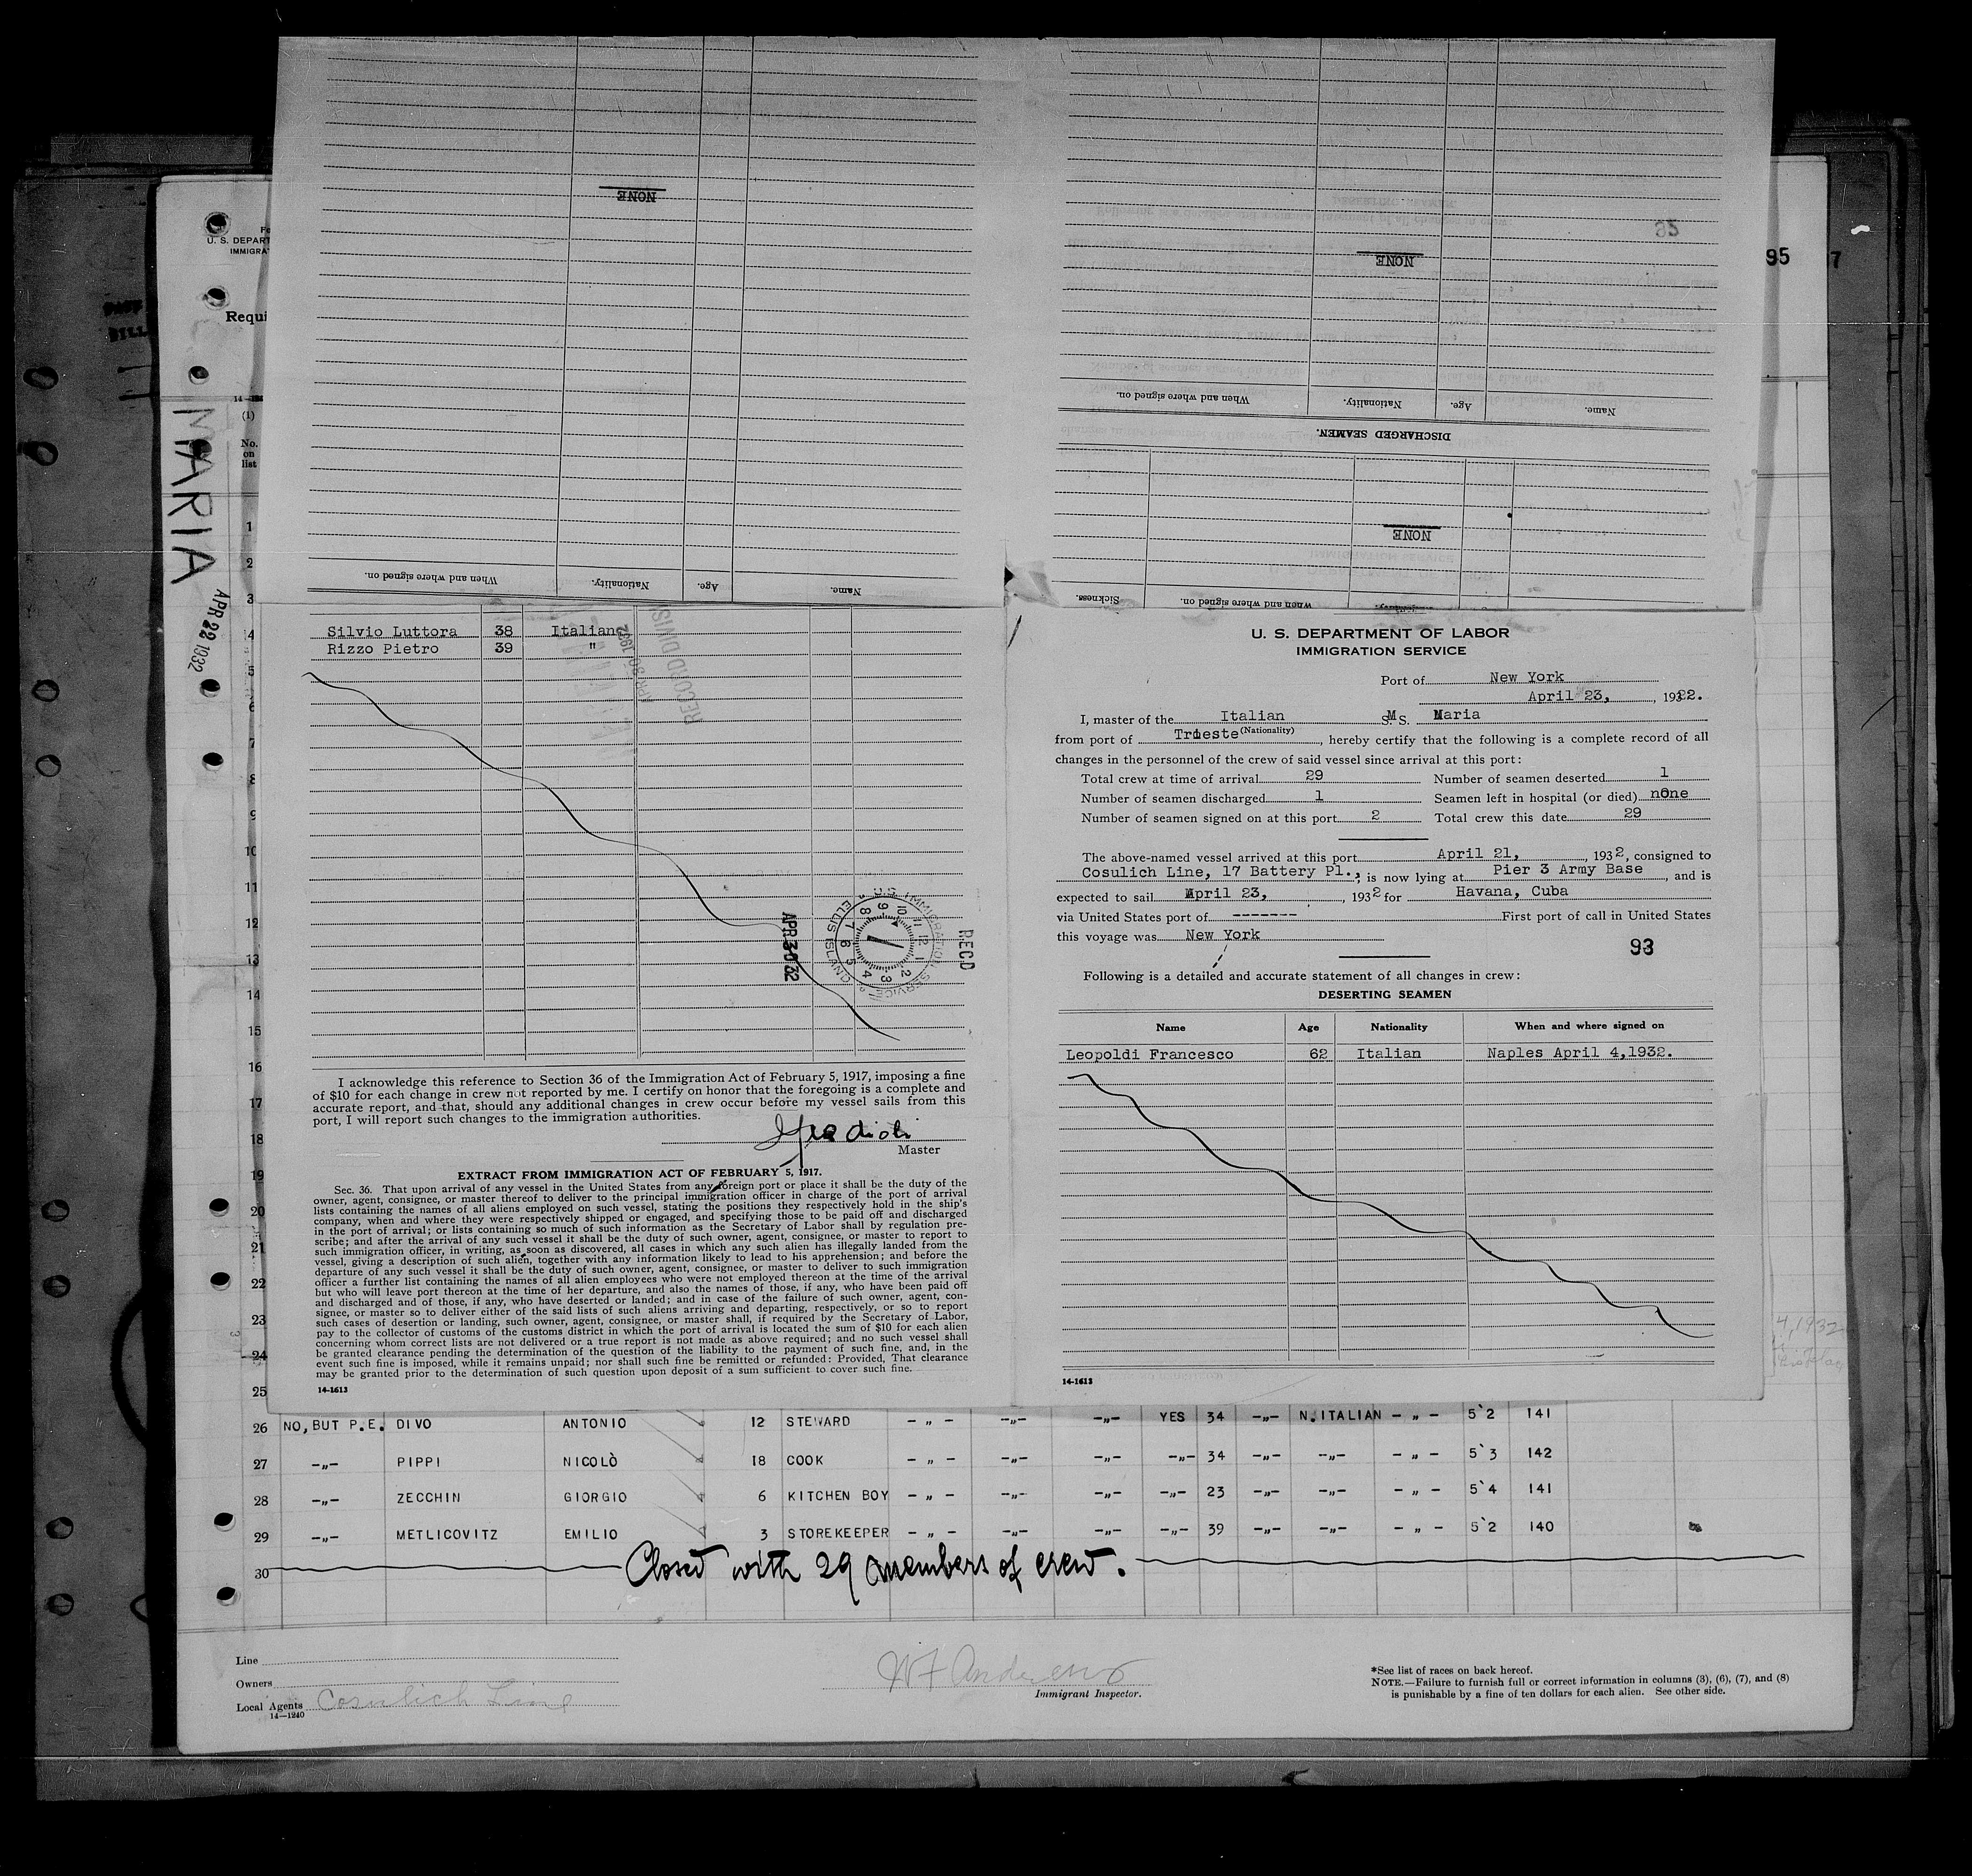 NONE
When and where signed on.
Nationality.
Age.
Name.
NONE
When and where signed on.
Nationality.
Age.
Name.
DISCHARGED SEAMEN.
NONE
Sickness.
When and where signed on.
95 7
U. S. DEPART
IMMIGRA
Requi
(1)
No.
on
list
MARIA
APR 22 1932
1
2
3
Silvio Luttora 38 Italian
Rizzo Pietro 39 "
RECORD DIVIS
APR 30 1932
14
5
6
7
8
9
10
11
12
13
14
15
16
17
18
19
20
21
22
23
24
25
APR 30 32
U.S. IMMIGRATION SERVICE
ELLIS ISLAND
REC'D
I acknowledge this reference to Section 36 of the Immigration Act of February 5, 1917, imposing a fine
of $10 for each change in crew not reported by me. I certify on honor that the foregoing is a complete and
accurate report, and that, should any additional changes in crew occur before my vessel sails from this
port, I will report such changes to the immigration authorities.
Master
EXTRACT FROM IMMIGRATION ACT OF FEBRUARY 5, 1917.
Sec. 36. That upon arrival of any vessel in the United States from any foreign port or place it shall be the duty of the
owner, agent, consignee, or master thereof to deliver to the principal immigration officer in charge of the port of arrival
lists containing the names of all aliens employed on such vessel, stating the positions they respectively hold in the ship's
company, when and where they were respectively shipped or engaged, and specifying those to be paid off and discharged
in the port of arrival; or lists containing so much of such information as the Secretary of Labor shall by regulation pre-
scribe; and after the arrival of any such vessel it shall be the duty of such owner, agent, consignee, or master to report to
such immigration officer, in writing, as soon as discovered, all cases in which any such alien has illegally landed from the
vessel, giving a description of such alien, together with any information likely to lead to his apprehension; and before the
departure of any such vessel it shall be the duty of such owner, agent, consignee, or master to deliver to such immigration
officer a further list containing the names of all alien employees who were not employed thereon at the time of the arrival
but who will leave port thereon at the time of her departure, and also the names of those, if any, who have been paid off
and discharged and of those, if any, who have deserted or landed; and in case of the failure of such owner, agent, con-
signee, or master so to deliver either of the said lists of such aliens arriving and departing, respectively, or so to report
such cases of desertion or landing, such owner, agent, consignee, or master shall, if required by the Secretary of Labor,
pay to the collector of customs of the customs district in which the port of arrival is located the sum of $10 for each alien
concerning whom correct lists are not delivered or a true report is not made as above required; and no such vessel shall
be granted clearance pending the determination of the question of the liability to the payment of such fine, and, in the
event such fine is imposed, while it remains unpaid; nor shall such fine be remitted or refunded: Provided, That clearance
may be granted prior to the determination of such question upon deposit of a sum sufficient to cover such fine.
14-1613
U. S. DEPARTMENT OF LABOR
IMMIGRATION SERVICE
Port of New York
April 23, 1932.
I, master of the Italian M. S. Maria
(Nationality)
from port of Trieste, hereby certify that the following is a complete record of all
changes in the personnel of the crew of said vessel since arrival at this port:
Total crew at time of arrival 29 Number of seamen deserted 1
Number of seamen discharged 1 Seamen left in hospital (or died) none
Number of seamen signed on at this port 2 Total crew this date 29
The above-named vessel arrived at this port April 21, 1932, consigned to
Cosulich Line, 17 Battery Pl., ; is now lying at Pier 3 Army Base, and is
expected to sail April 23, 1932 for Havana, Cuba
via United States port of ------- First port of call in United States
this voyage was New York
93
Following is a detailed and accurate statement of all changes in crew:
DESERTING SEAMEN
Name Age Nationality When and where signed on
Leopoldi Francesco 62 Italian Naples April 4, 1932.
14-1613
4, 1932
26 NO, BUT P.E. DIVO ANTONIO 12 STEWARD - „ - -„- -„- YES 34 -„- N. ITALIAN - „ - 5`2 141
27 -„- PIPPI NICOLÒ 18 COOK - „ - -„- -„- -„- 34 -„- -„- - „ - 5`3 142
28 -„- ZECCHIN GIORGIO 6 KITCHEN BOY - „ - -„- -„- -„- 23 -„- -„- - „ - 5`4 141
29 -„- METLICOVITZ EMILIO 3 STOREKEEPER - „ - -„- -„- -„- 39 -„- -„- - „ - 5`2 140
30 Closed with 29 members of crew.
Line
Owners
Local Agents Cosulich Line
14—1240
W F Andrews
Immigrant Inspector.
*See list of races on back hereof.
NOTE.—Failure to furnish full or correct information in columns (3), (6), (7), and (8)
is punishable by a fine of ten dollars for each alien. See other side.